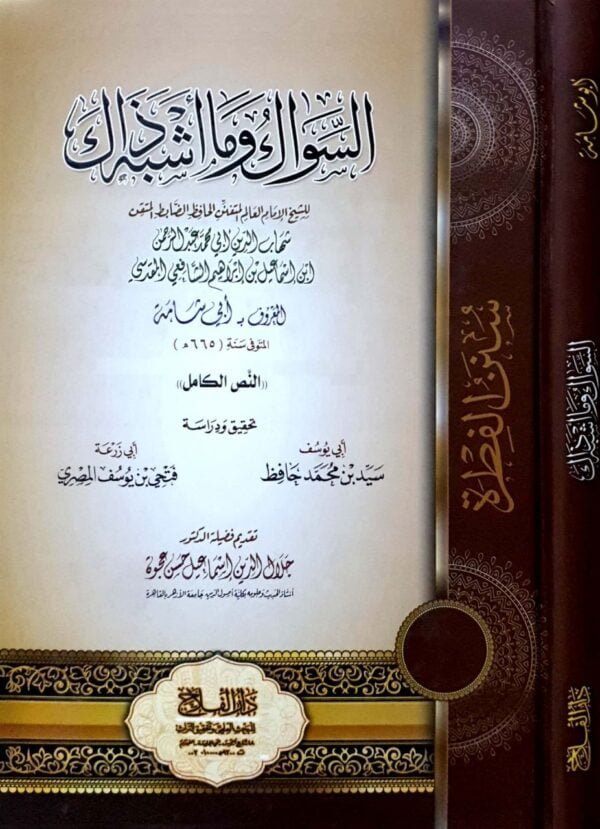 السِّوَاكُ وَمَا أَشْبَهَ ذَاكَ
للشيخ الإمام العالم المتفنن الحافظ الضابط المتقن
شهاب الدين أبي محمد عبد الرحمن
ابن إسماعيل بن إبراهيم الشافعي المقدسي
المعروف بـ أبي شامة
المتوفى سنة (٦٦٥ هـ)
((النص الكامل))
تحقيق ودراسة
أبي يوسف
سيد بن محمد حافظ
أبي زرعة
فتحي بن يوسف المصري
تقديم فضيلة الدكتور
جلال الدين إسماعيل حسن عجوة
أستاذ الحديث وعلومه بكلية أصول الدين جامعة الأزهر بالقاهرة
دار الفلاح
للبحث العلمي وتحقيق التراث
سنن الفطرة
أبو شامة
السواك وما أشبه ذاك
دار الفلاح